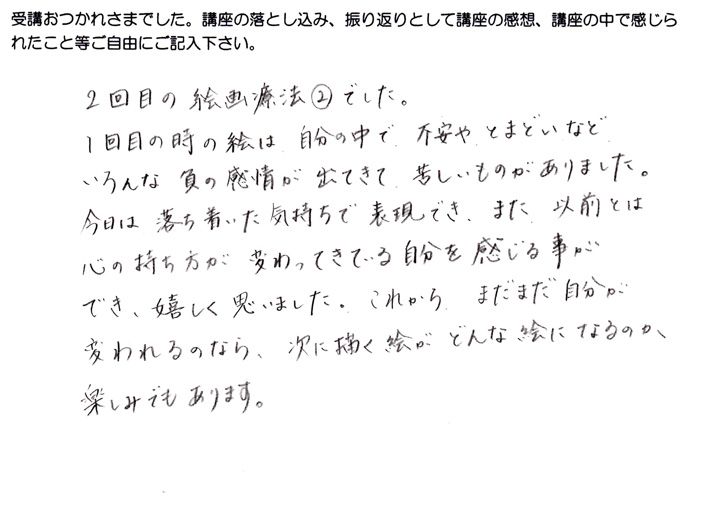 受講おつかれさまでした。講座の落とし込み、振り返りとして講座の感想、講座の中で感じら
れたこと等ご自由にご記入下さい。
2回目の絵画療法②でした。
1回目の時の絵は自分の中で不安やとまどいなど
いろんな負の感情が出てきて苦しいものがありました。
今日は落ち着いた気持ちで表現でき、また以前とは
心の持ち方が変わってきている自分を感じる事が
でき、嬉しく思いました。これからまだまだ自分が
変われるのなら、次に描く絵がどんな絵になるのか、
楽しみでもあります。